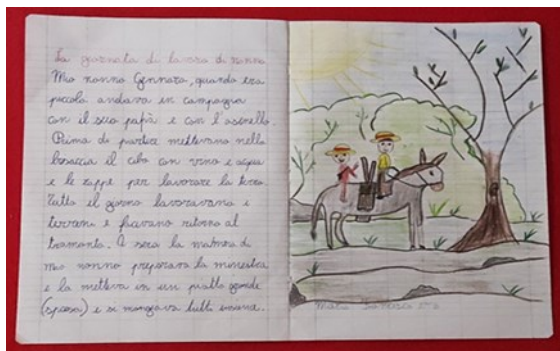 La giornata di lavoro di nonno
Mio nonno Gennaro, quando era
piccolo andava in campagna
con il suo papà e con l'asinello.
Prima di partire mettevano nella
bisaccia il cibo con vino e acqua
e le zappe per lavorare la terra.
Tutto il giorno lavoravano i
terreni e facevano ritorno al
tramonto. A sera la mamma di
mio nonno preparava la minestra
e la metteva in un piatto grande
(spasa) e si mangiava tutti insieme.